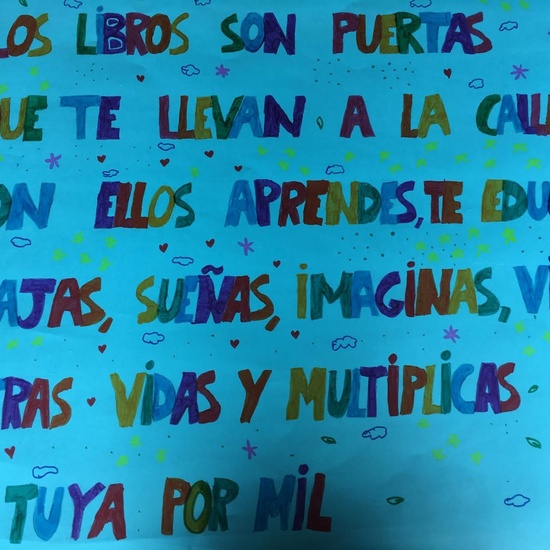 LOS LIBROS SON PUERTAS
QUE TE LLEVAN A LA CALLE
CON ELLOS APRENDES, TE EDU
AJAS, SUEÑAS, IMAGINAS, VI
RAS VIDAS Y MULTIPLICAS
TUYA POR MIL